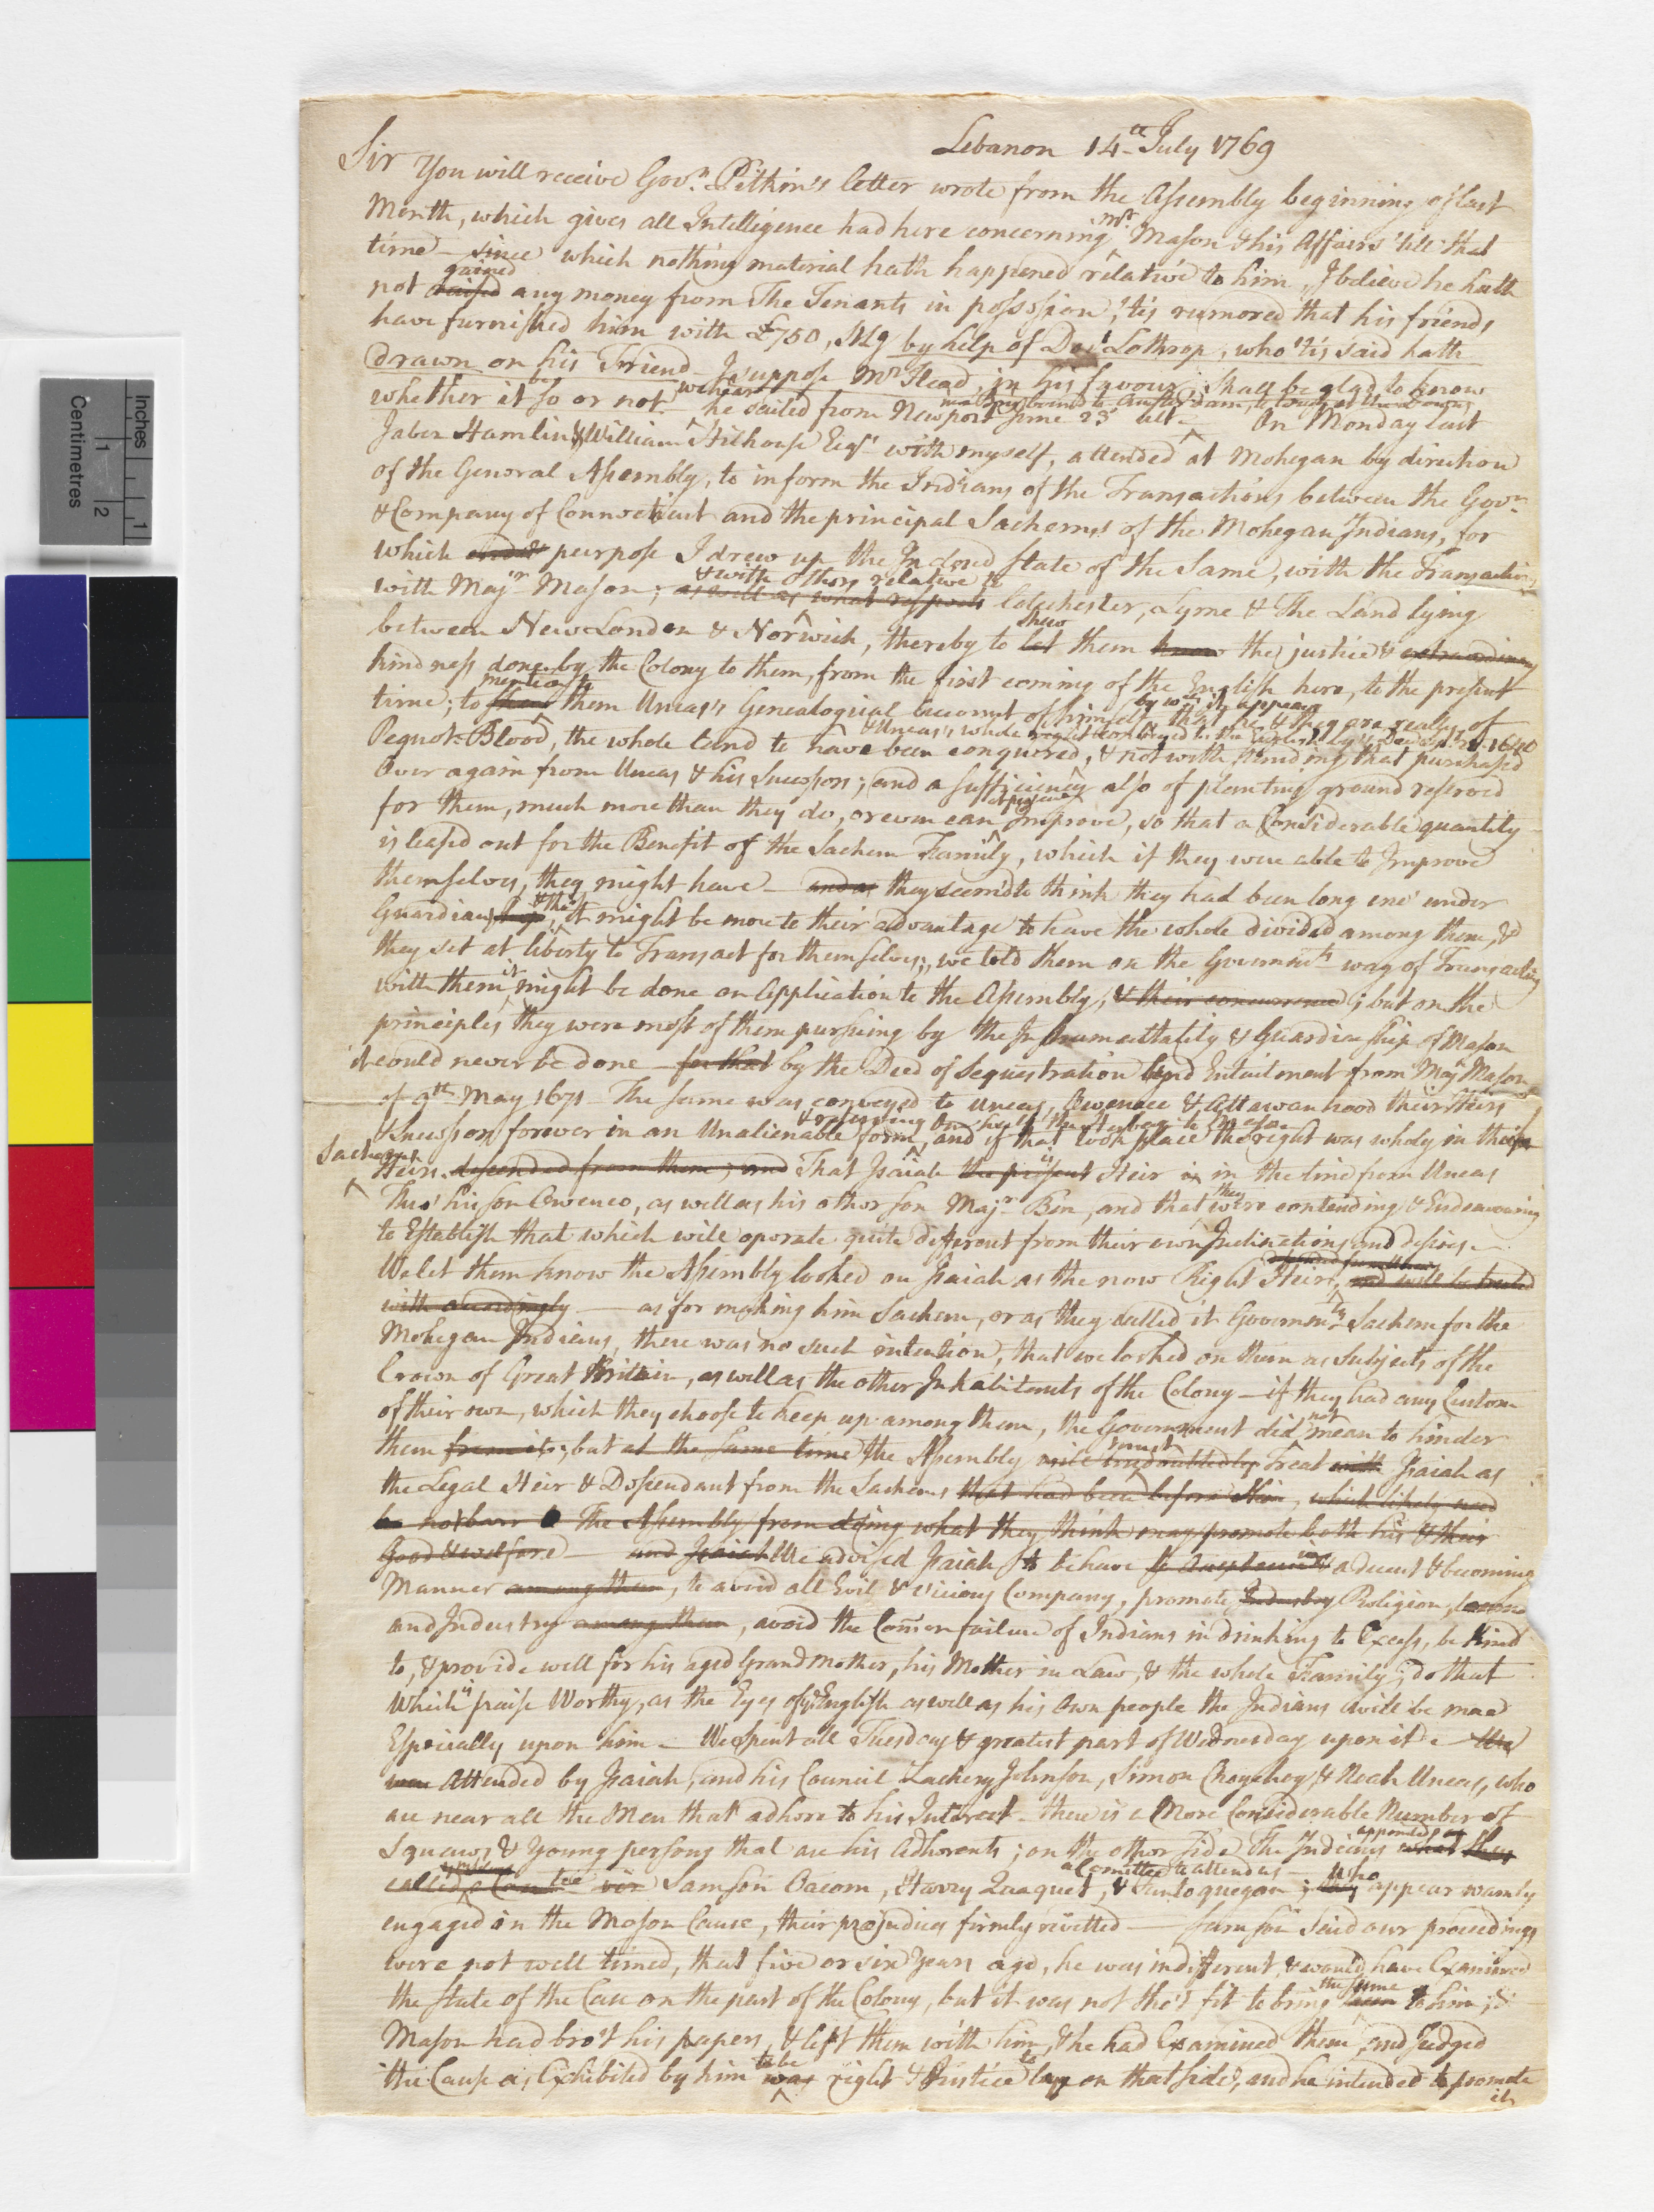 Lebanon 14th July 1769
Sir You will receive Govr. Pitkin's letter wrote from the Assembly beginning of last
Month, which gives all Intelligence had here concerning Mr. Mason & his Affairs 'till that
time — since which nothing material hath happened relative to him, I believe he hath
gained
not raised any money from The Tenants in possession, 'tis rumored that his friends
have furnished him with £750, Stlg by help of Doct Lothrop, who 'tis said hath
drawn on his Friend I suppose Mr Stead, in his favour; shall be glad to know
whether it be so or not. we hear he sailed from Newport June 23d ult — On Monday last
Jabez Hamlin & William Hilhouse Esqrs with myself, attended at Mohegan by direction
of the General Assembly, to inform the Indians of the Transactions between the Govr.
& Company of Connecticut and the principal Sachems of the Mohegan Indians, for
which purpose I drew up the Inclosed State of the Same, with the Transactions
& with others relative to
with Majr Mason; as well as what respects Colchester, Lyme & The Land lying
shew
between New London & Norwich, thereby to let them know the justice & extraordinary
kindness done by the Colony to them, from the first coming of the English here, to the present
mention
time; to shew them Uncas's Genealogical account of himself by wch it appears that he & they are really of
& Uncas's whole right conveyed to the English by his Deed 1640
Pequot-Blood, the whole Land to have been conquered, & notwithstanding that purchased
Over again from Uncas & his Successors; and a sufficiency also of planting ground reserved
at present
for them, much more than they do, or even can Improve, so that a Considerable quantity
is leased out for the Benefit of the Sachem Family, which if they were able to Improve
themselves, they might have — and as they seem'd to think they had been long eno' under
Guardianship, & that it might be more to their advantage to have the whole divided among them, &
they set at liberty to Transact for themselves; we told them on the Governmts way of Transacting
with them it might be done on Application to the Assembly, & their concurrence; but on the
principles they were most of them pursuing by the Instrumentality & Guardianship of Mason
it could never be done — for that by the Deed of Sequestration and Entailment from Majr Mason
of 9th May 1671 The same was conveyed to Uncas, Oweneco & Attawanhood their Heirs
& Successors forever in an Unalienable form, and if that took place the right was wholy in their
Sachems
Heirs descended from them; and That Isaiah the present Heir is in the line from Uncas
Thro' his son Oweneco, as well as his other son Majr. Ben, and that they were contending & Endeavouring
to Establish that which will operate quite different from their own Inclinations and desires —
We let them know the Assembly looked on Isaiah as the now Right Heir, and will be treated
with accordingly — as for making him Sachem, or as they called it Governmts Sachem for the
Mohegan Indians, there was no such intention, that we looked on them as Subjects of the
Crown of Great Britain, as well as the other Inhabitants of the Colony — if they had any Custom
of their own, which they choose to keep up among them, the Government did not mean to hinder
must
them from it; but at the same time the Assembly will undoubtedly Treat with Isaiah as
the Legal Heir & Descendant from the Sachems that had been before Him, which likely need
be not barr The Assembly from doing what they think may promote both his & their
Good & welfare — and Isaiah We advised Isaiah to behave in a decent & becoming
Manner among them, to avoid all Evil & vicious Company, promote Industry Religion,
and Industry among them, avoid the Comon failure of Indians in drinking to Excess, be Kind
to, & provide well for his aged Grand Mother, his Mother in Law, & the whole Family; do that
Which is praise Worthy, as the Eyes of ye English as well as his Own people the Indians will be
Especially upon him — We Spent all Tuesday & greatest part of Wednesday upon it — We
were Attended by Isaiah, and his Council Zachery Johnson, Simon Choychoy, & Noah Uncas, who
are near all the Men that adhere to his Interest — there is a More Considerable Number of
Squaws & Young persons that are his Adherents; on the other side The Indians appointed what they
a Comittee to attend us — who
called Samson Occom, Henry Quaquet, & Tantoquegon; they appear warmly
engaged in the Mason Cause, their prejudices firmly rivetted — Samson Said our proceedings
were not well timed, that five or six Years ago, he was indifferent, & would have Examined
the same
the State of the Case on the part of the Colony, but it was not tho't fit to bring to him; &
Mason had bro't his papers, & left them with him, & he had Examined them, and Judged
to be
the Cause as Exhibited by him was right & Justice to lay on that side, and he intended to promote
it